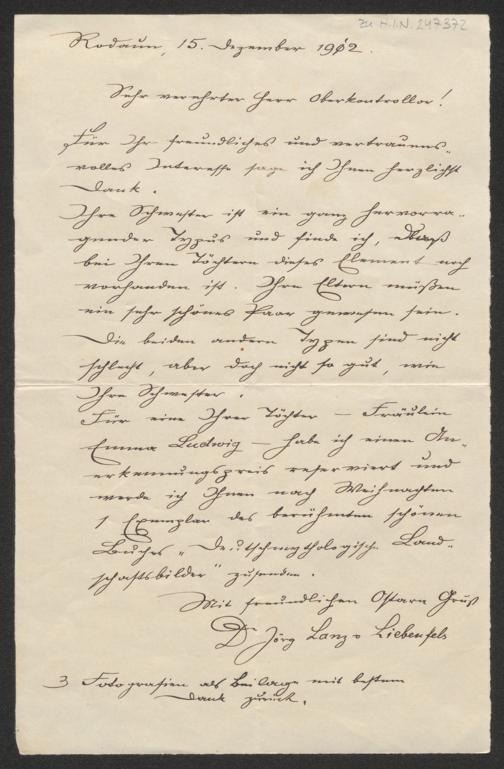 zu H.I.N. 247372
Rodaun, 15. Dezember 1912.
Sehr verehrter Herr Oberkontrollor!
Für Ihr freundliches und vertrauens-
volles Interesse sage ich Ihnen herzlichst
Dank.
Ihre Schwester ist ein ganz hervorra-
gender Typus und finde ich, daß
bei Ihren Töchtern dieses Element noch
vorhanden ist. Ihre Eltern müßen
ein sehr schönes Paar gewesen sein.
Die beiden andern Typen sind nicht
schlecht, aber doch nicht so gut, wie
Ihre Schwester.
Für eine Ihrer Töchter – Fräulein
Emma Ludwig – habe ich einen An-
erkennungspreis reserviert und
werde ich Ihnen nach Weihnachten
1 Exemplar des berühmten schönen
Buches "Deutschmythologische Land-
schaftsbilder" zusenden.
Mit freundlichem Ostara Gruß
Dr Jörg Lanz v Liebenfels
3 Fotografien als Beilage mit bestem
Dank zurück.